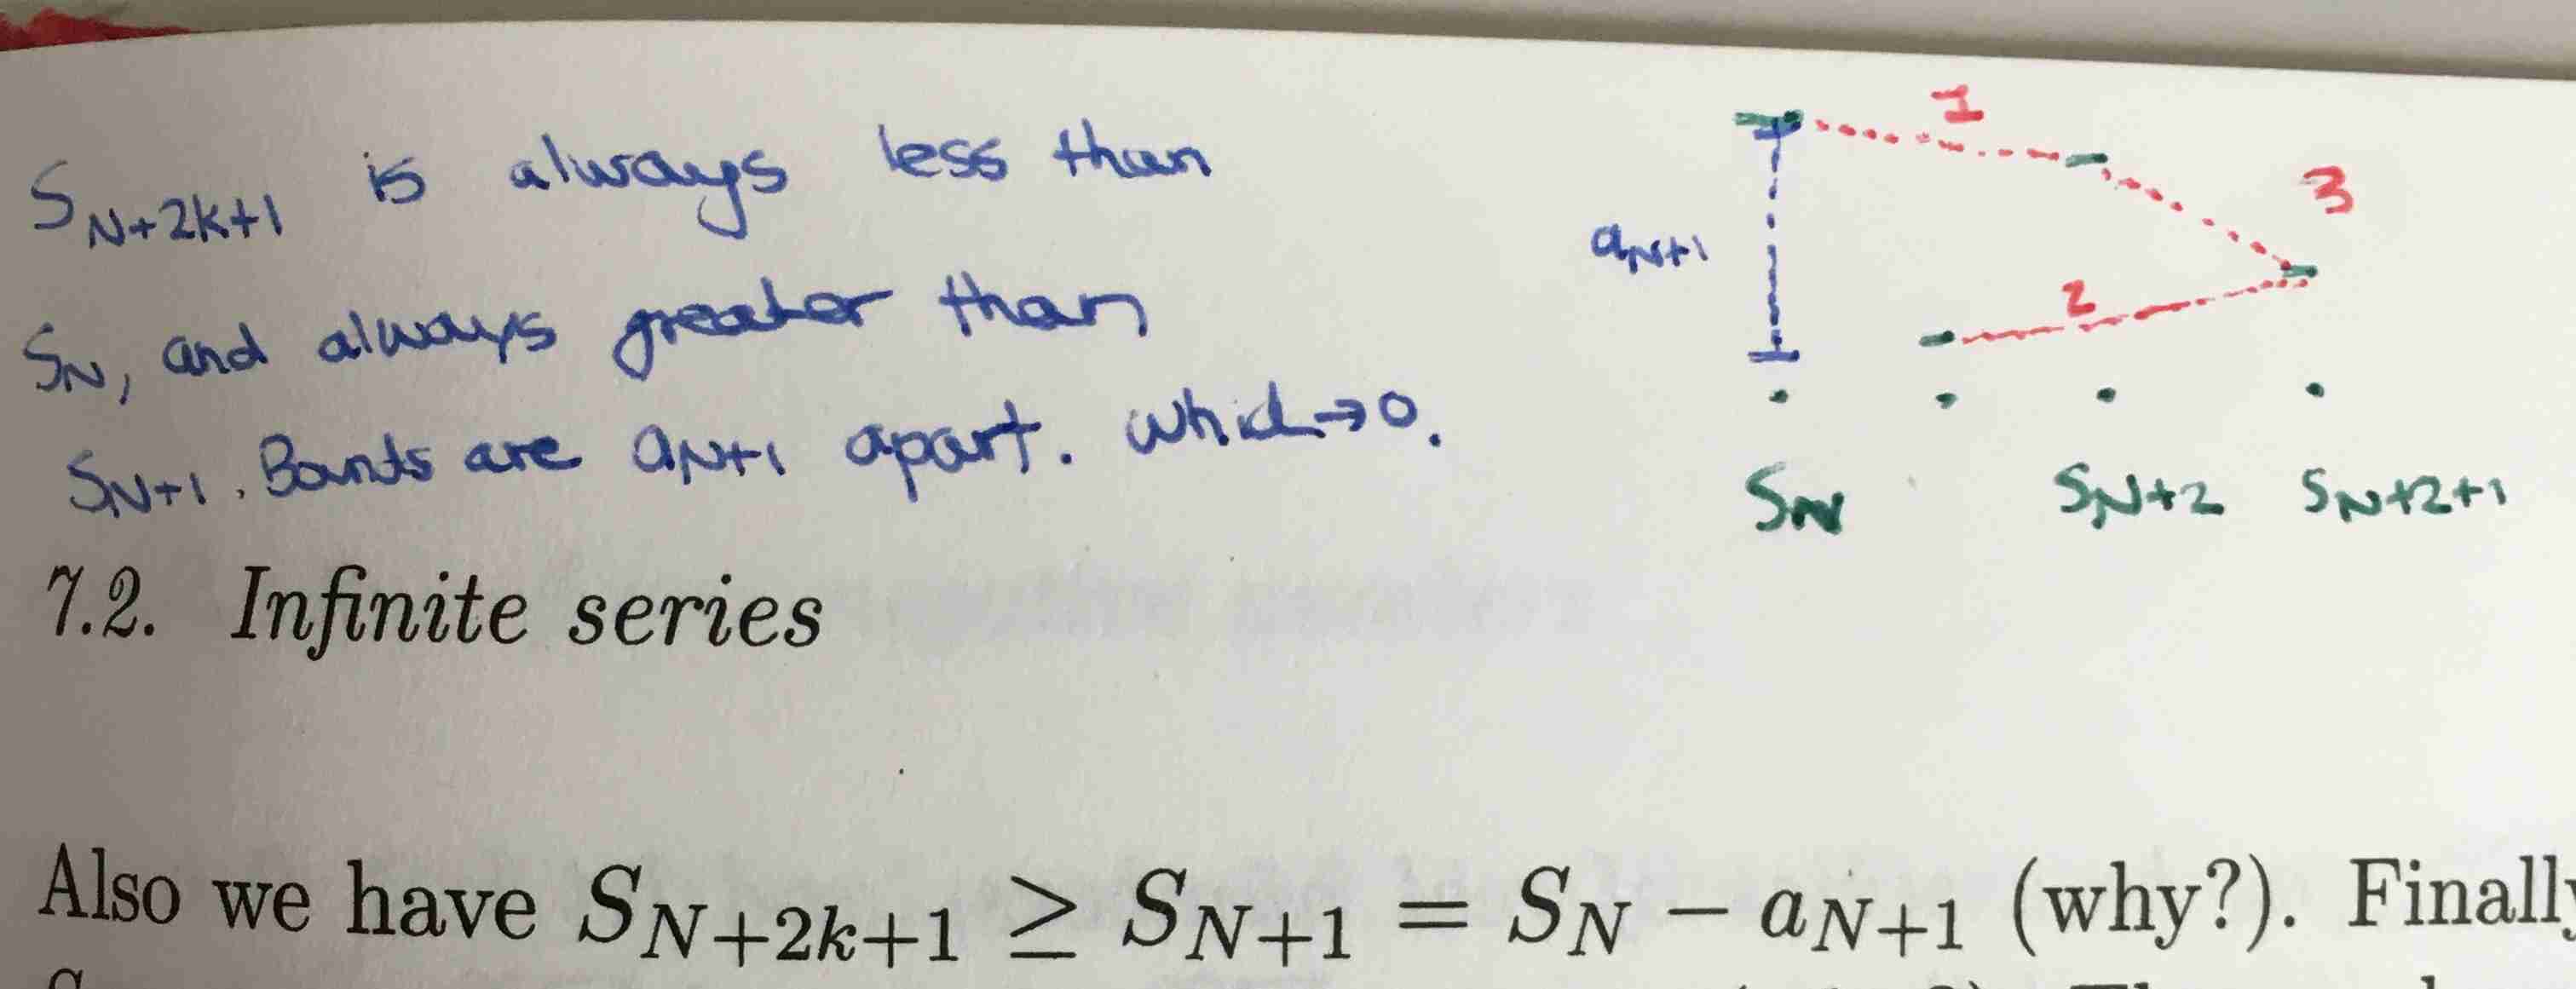 S_{N+2k+1} is always less than
S_N, and always greater than
S_{N+1}. Bounds are a_{N+1} apart. Which → 0.
1
3
a_{N+1}
2
S_N S_{N+2} S_{N+2+1}
7.2. Infinite series
Also we have S_{N+2k+1} ≥ S_{N+1} = S_N − a_{N+1} (why?). Finally